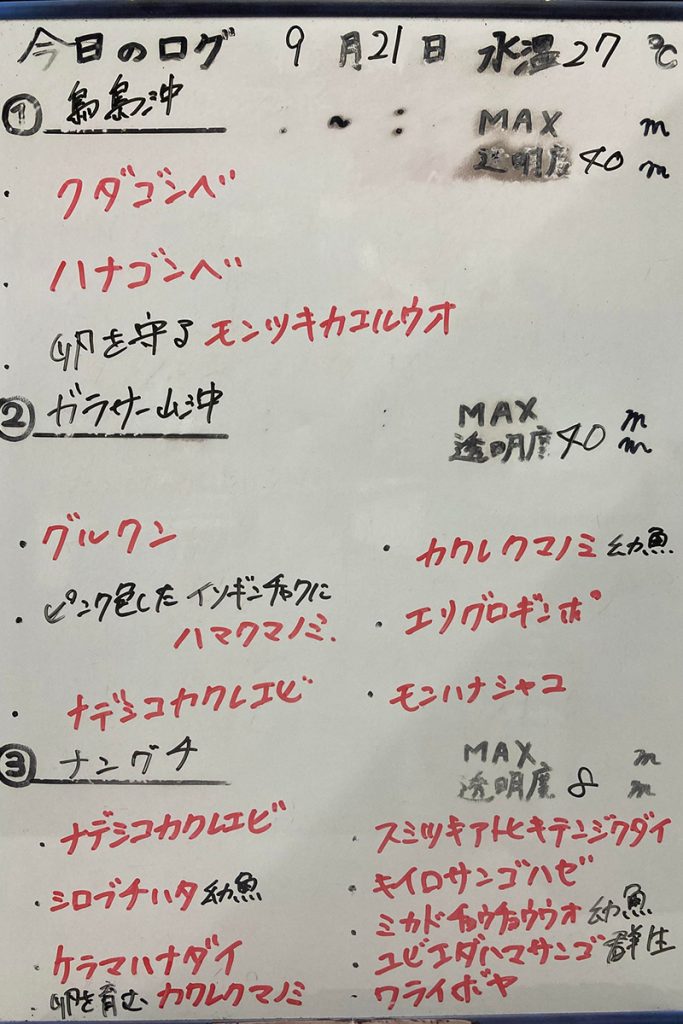 今日のログ 9月21日 水温27℃
① 鳥島沖 . ~ : MAX m
透明度 40 m
・クダゴンベ
・ハナゴンベ
・卵を守るモンツキカエルウオ
② ガラサー山沖 MAX m
透明度 40 m
・グルクン
・ピンク色したイソギンチャクに
ハマクマノミ.
・ナデシコカクレエビ
・カクレクマノミ 幼魚
・エリグロギンポ
・モンハナシャコ
③ ナングチ MAX m
透明度 8 m
・ナデシコカクレエビ
・シロブチハタ幼魚
・ケラマハナダイ
・卵を育む カクレクマノミ
・スミツキアトヒキテンジクダイ
・キイロサンゴハゼ
・ミカドチョウチョウウオ 幼魚
・ユビエダハマサンゴ 群生
・ワライボヤ